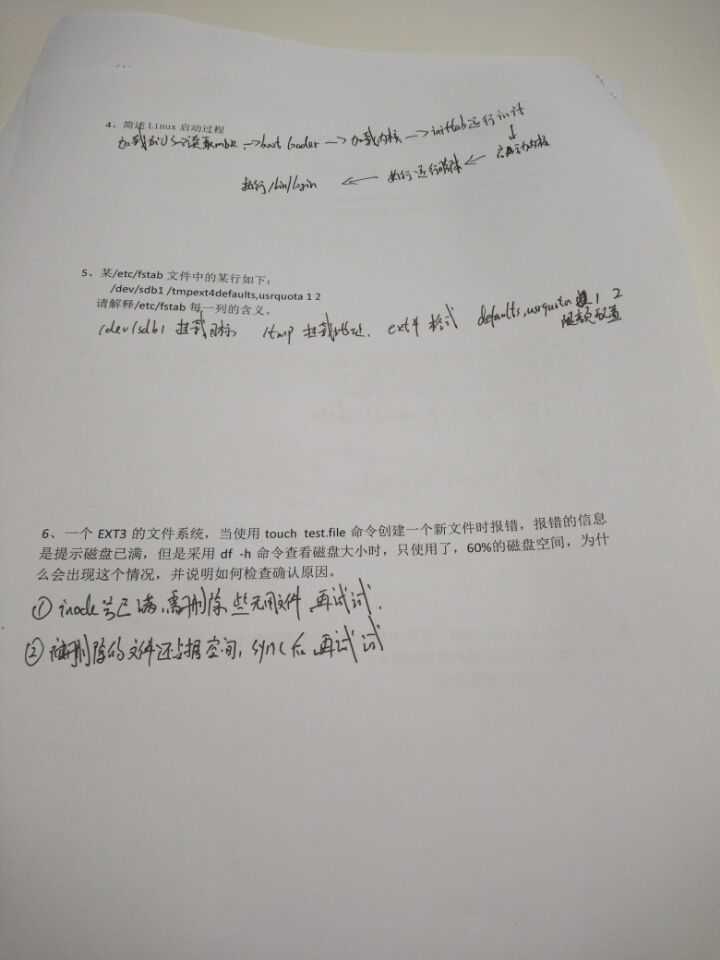 4、简述 Linux 启动过程
加载BIOS→读取mbr→boot loader→加载内核→inittab运行init
↓
执行/bin/login ← 执行运行 ← 内核
5、某/etc/fstab 文件中的某行如下：
/dev/sdb1 /tmpext4defaults,usrquota 1 2
请解释/etc/fstab 每一列的含义。
/dev/sdb1 挂载目标 /tmp 挂载地址. ext4 格式 defaults,usrquota 1 2
限额设置
6、一个 EXT3 的文件系统，当使用 touch test.file 命令创建一个新文件时报错，报错的信息
是提示磁盘已满，但是采用 df -h 命令查看磁盘大小时，只使用了，60%的磁盘空间，为什
么会出现这个情况，并说明如何检查确认原因。
① inode号已满,需删除些无用文件 再试试.
② 被删除的文件还占据空间, sync后 再试试